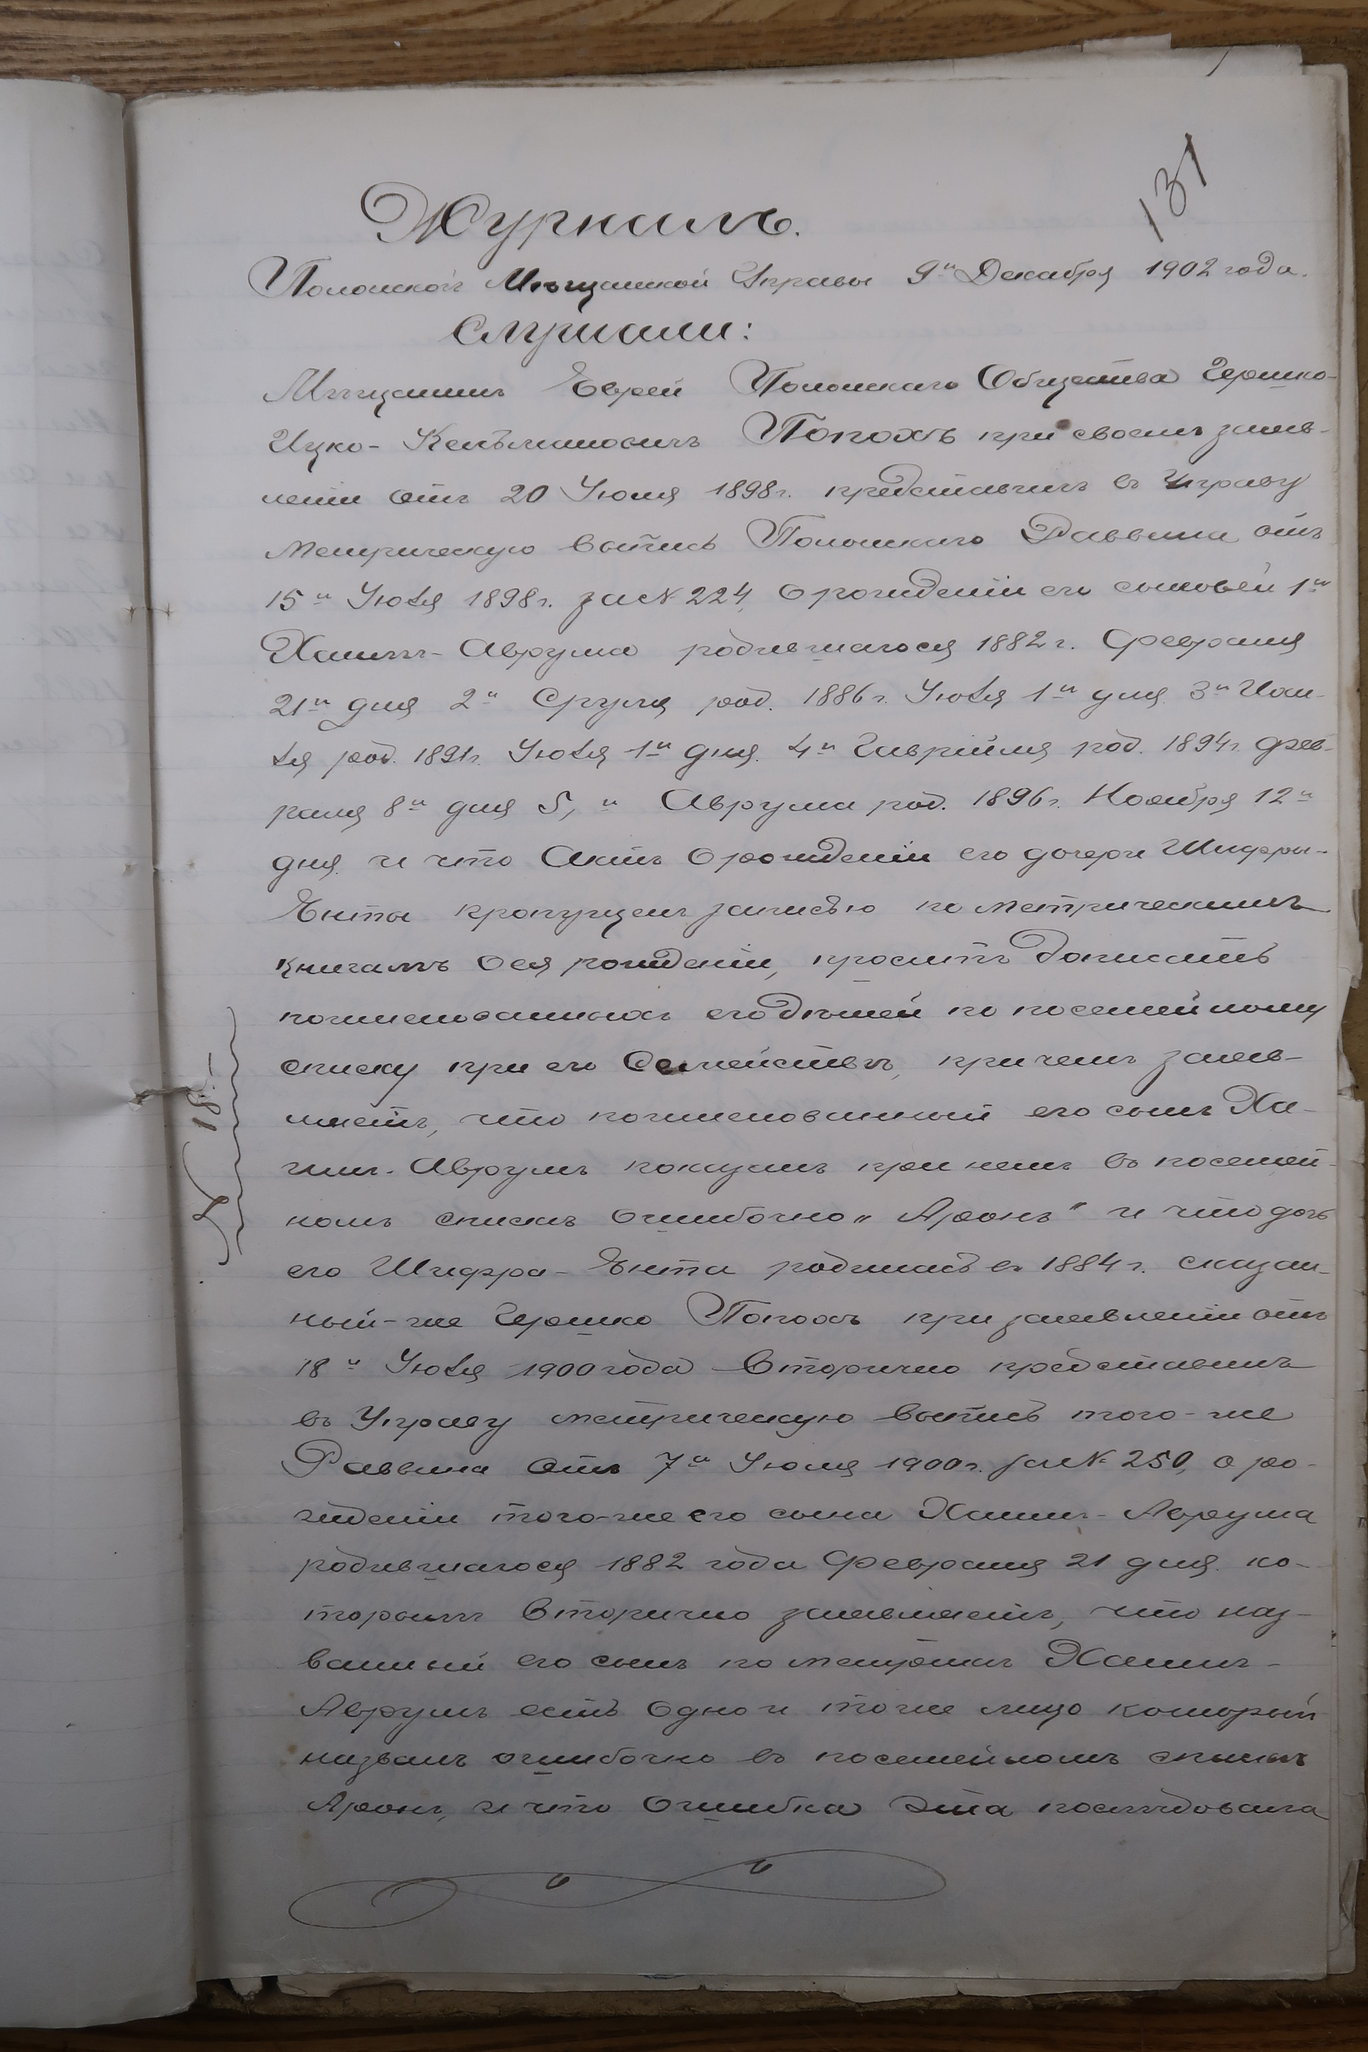 131
Журналъ.
Полонской Мѣщанской Управы 9го Декабря 1902 года.
Слушали:
Мѣщанинъ Еврей Полонскаго Общества Гершко-
Ицко-Кельмановичъ Полохъ при своемъ заяв-
леніи отъ 20 Іюля 1898 г. представилъ въ Управу
метрическую выпись Полонскаго Раввина отъ
15го Іюля 1898 г. за № 224, о рожденіи его сыновей 1го
Хаимъ-Аврума родившагося 1882 г. Февраля
21го дня 2го Сруля род. 1886 г. Іюля 1го дня 3го
род. 1891 г. Іюля 1го дня. 4го Гаврійля род. 1894 г. Фев-
раля 8го дня 5, го Аврума род. 1896 г. Ноября 12го
дня. и что Актъ о рожденіи его дочери Шифры-
Енты пропущенъ записью по метрическимъ
книгамъ о ея рожденіи, проситъ дописать
поименованныхъ его дѣтей по посемейному
списку при его Семействѣ, причемъ заяв-
ляетъ, что поименованный его сынъ Ха-
имъ-Аврумъ показанъ при немъ въ посемей-
номъ спискѣ ошибочно „Аронъ" и что дочь
его Шифра-Ента родилась въ 1884 г. сказан-
ный-же Гершко Полохъ при заявленіи отъ
18го Іюля 1900 года вторично представилъ
въ Управу метрическую выпись того-же
Раввина отъ 7го Іюля 1900 г. за № 250, о ро-
жденіи того-же его сына Хаимъ-Аврума
родившагося 1882 года Февраля 21 дня. ко-
торымъ вторично заявляетъ, что наз-
ванный его сынъ по метрикѣ Хаимъ-
Аврумъ есть одно и тоже лицо который
названъ ошибочно въ посемейномъ спискѣ
Аронъ, и что ошибка эта послѣдовала